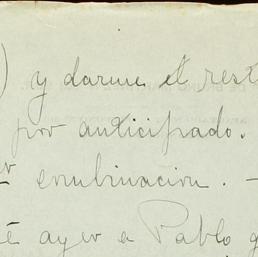 ) y darme el rest
por anticipado.
combinacion. -
té ayer a Pablo q